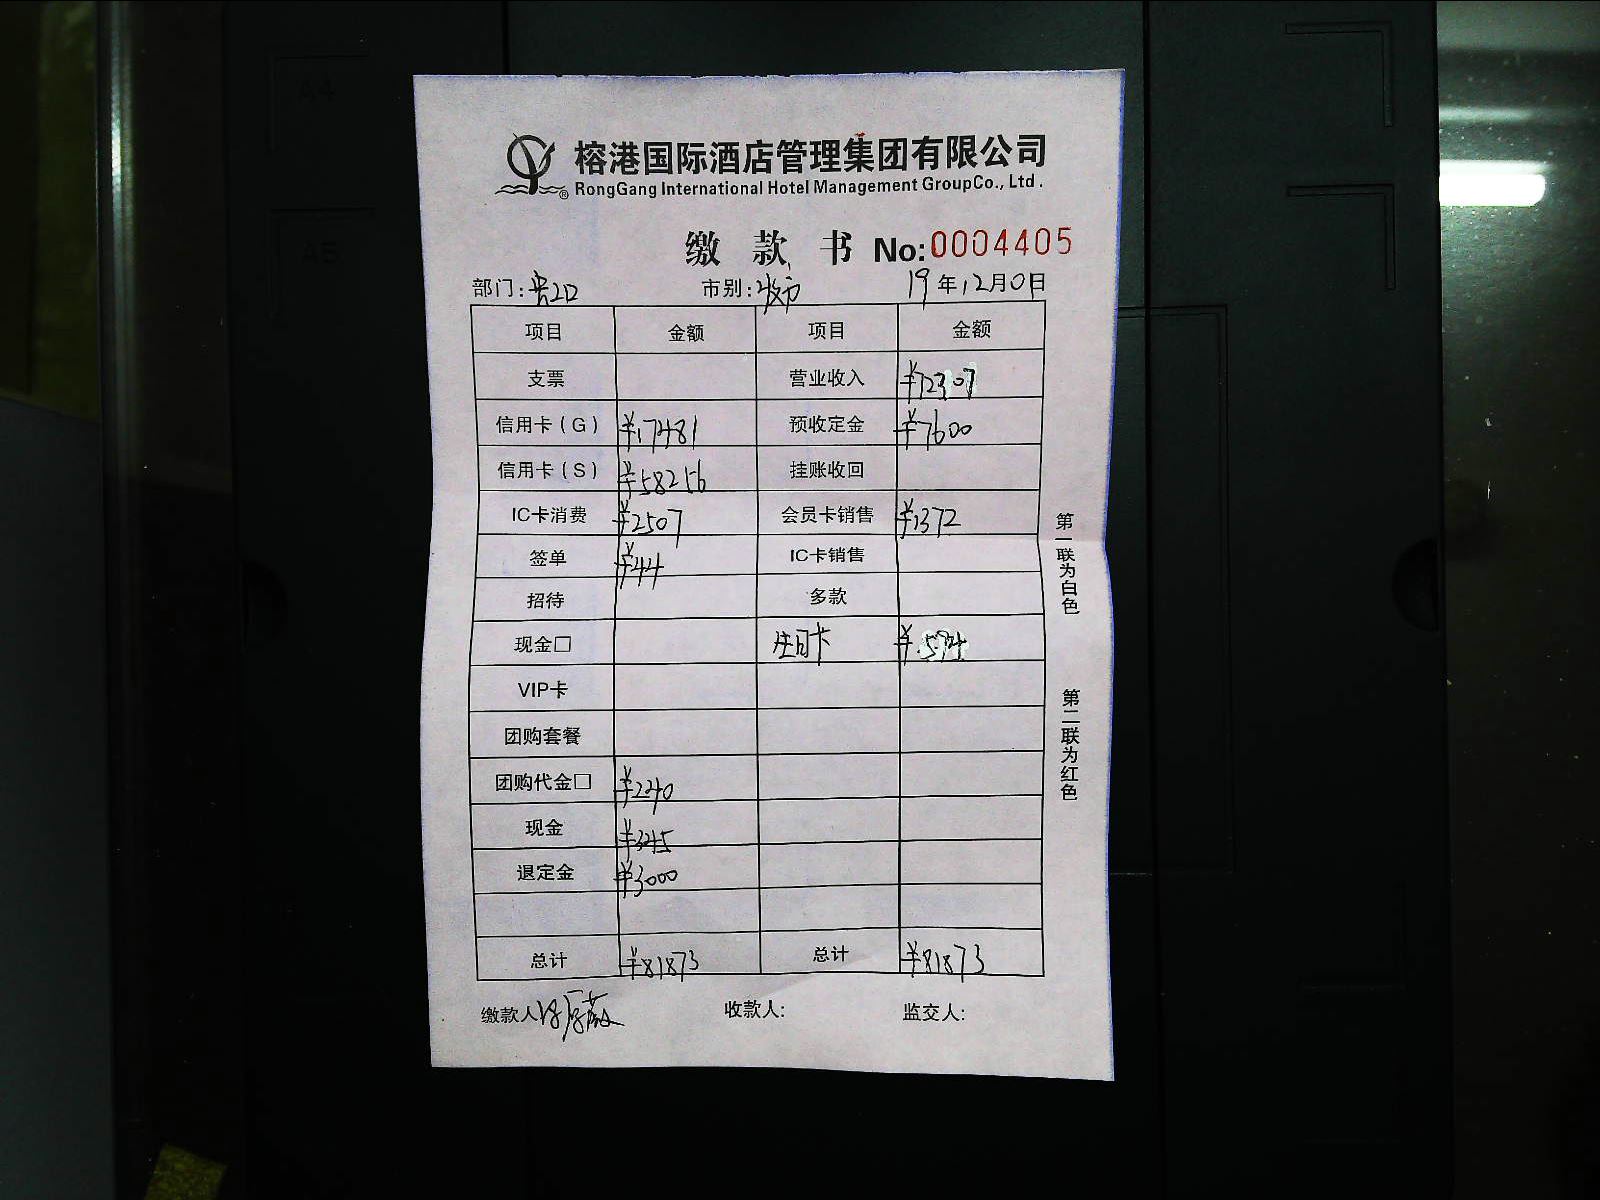 榕港国际酒店管理集团有限公司
RongGang International Hotel Management GroupCo., Ltd.
缴款书 No:0004405
部门: 市别: 19年12月0日
项目 金额 项目 金额
支票 营业收入 ¥72307
信用卡(G) ¥17481 预收定金 ¥7600
信用卡(S) ¥58256 挂账收回
IC卡消费 ¥2507 会员卡销售 ¥1372
签单 ¥44 IC卡销售
招待 多款
现金□ 卡 ¥594
VIP卡
团购套餐
团购代金□ ¥240
现金 ¥345
退定金 ¥3000
总计 ¥81873 总计 ¥81873
缴款人 收款人: 监交人:
第一联为白色
第二联为红色
A4
A5